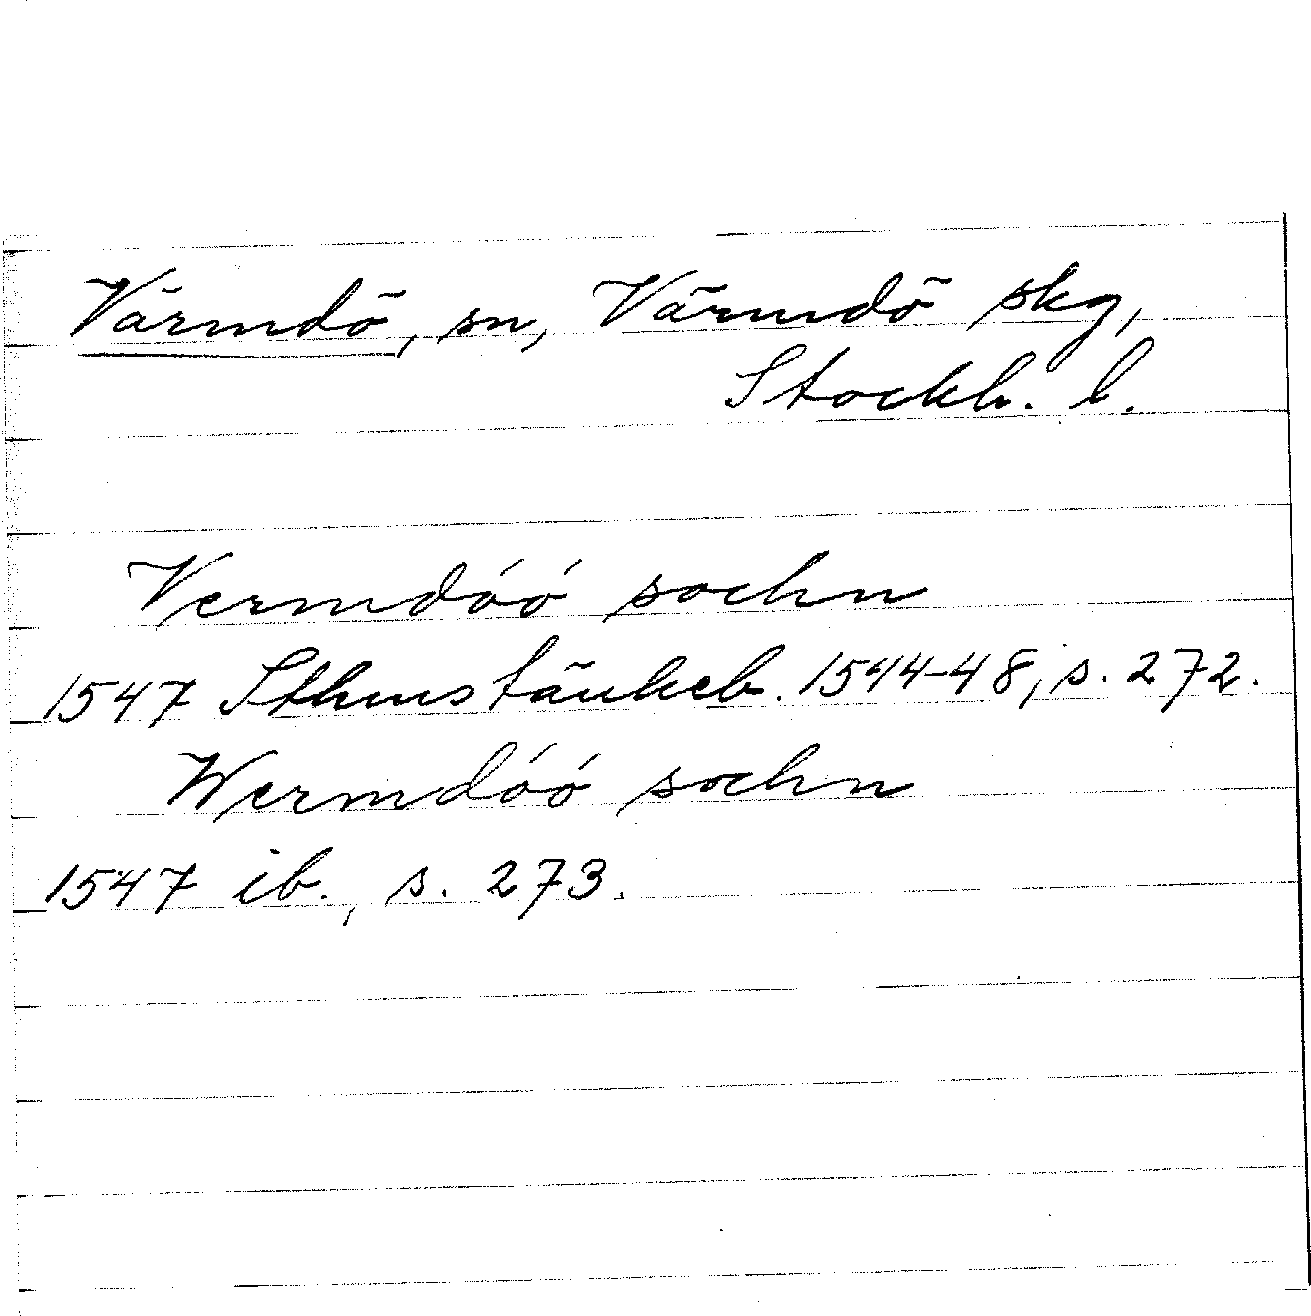 Värmdö, sn, Värmdö skg,
Stockh. l.
Vermdóó sochn
1547 Sthms tänkeb. 1544-48, s. 272.
Wermdóó sochn
1547 ib., s. 273.